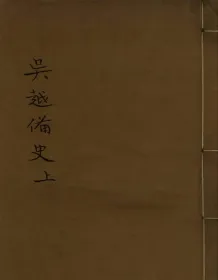 吳越備史上